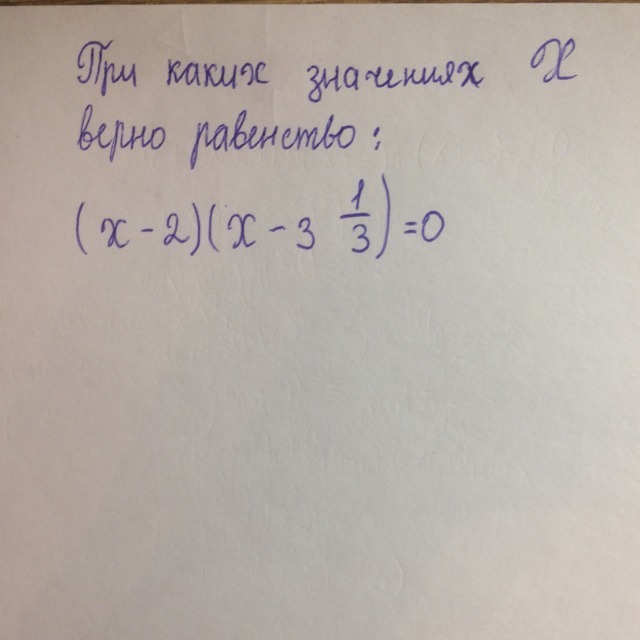 При каких значениях X
верно равенство:
(x - 2)(x - 3 1/3) = 0